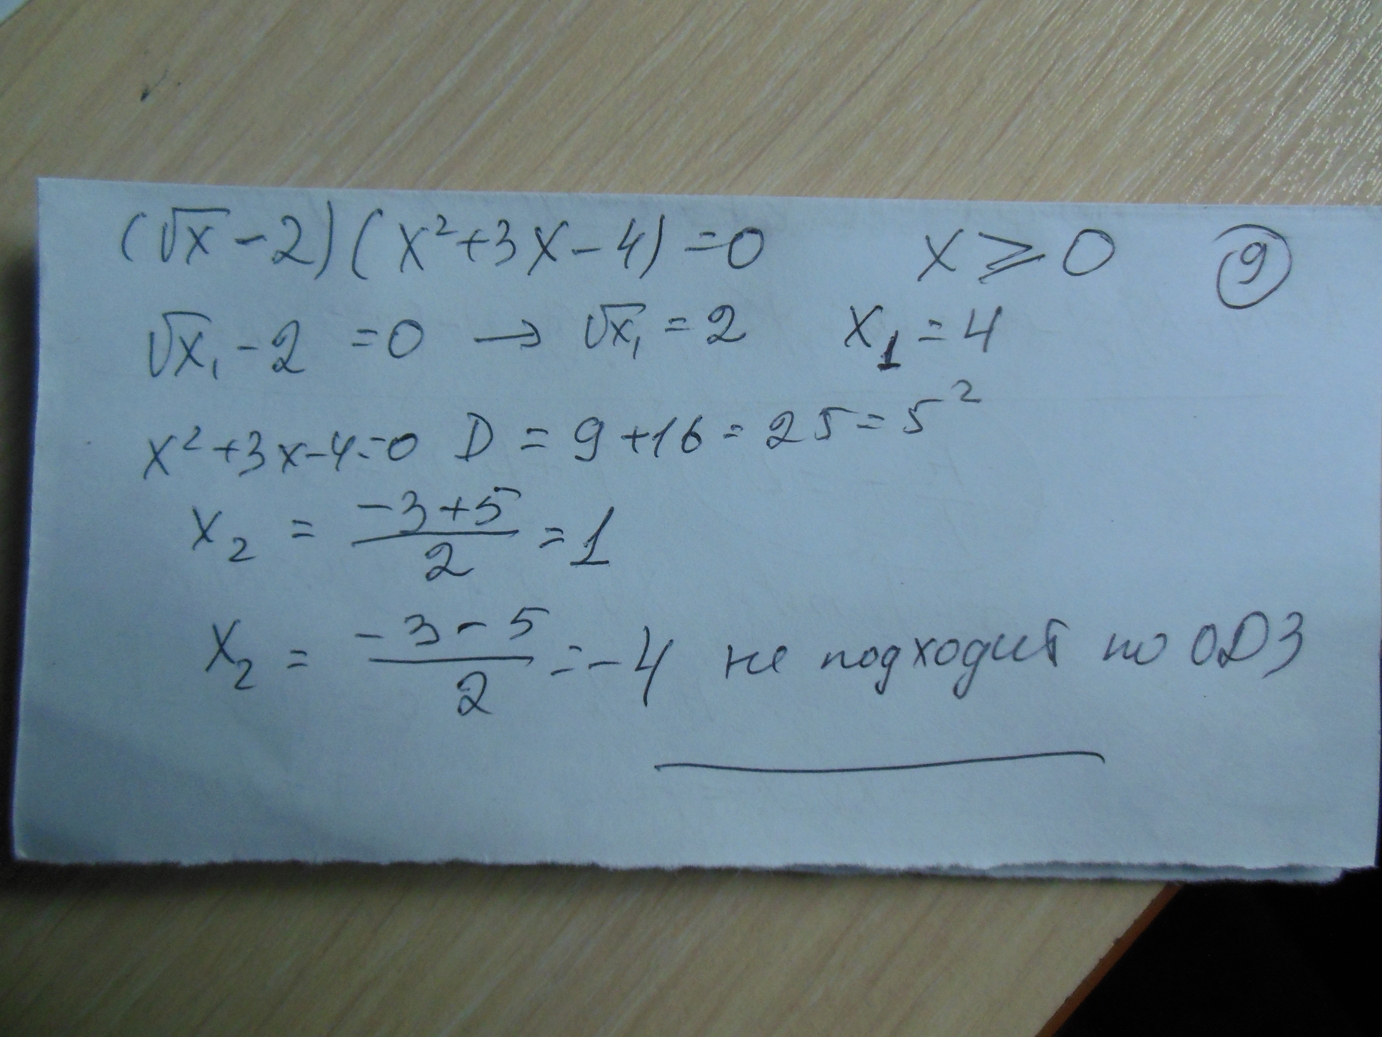 (√x - 2)(x² + 3x - 4) = 0 x ⩾ 0 9
√x₁ - 2 = 0 → √x₁ = 2 x₁ = 4
x² + 3x - 4 = 0 D = 9 + 16 = 25 = 5²
x₂ = (-3+5)/2 = 1
x₂ = (-3-5)/2 = -4 не подходит по ОДЗ